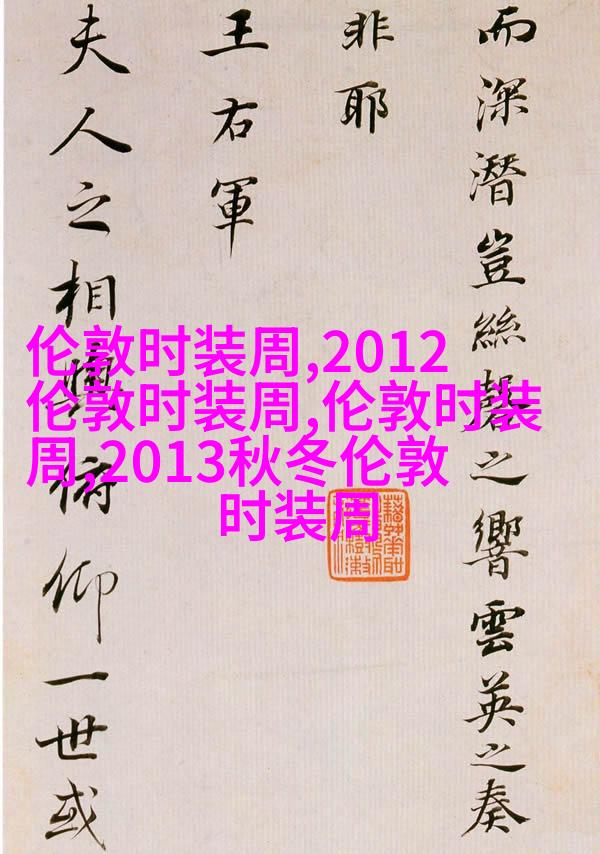 伦敦时装周,2012
伦敦时装周,伦敦时装
周,2013秋冬伦敦
时装周
而深潜豈絲磬之響雲英之奏
非耶
王右軍
夫人之相與俯仰一世或